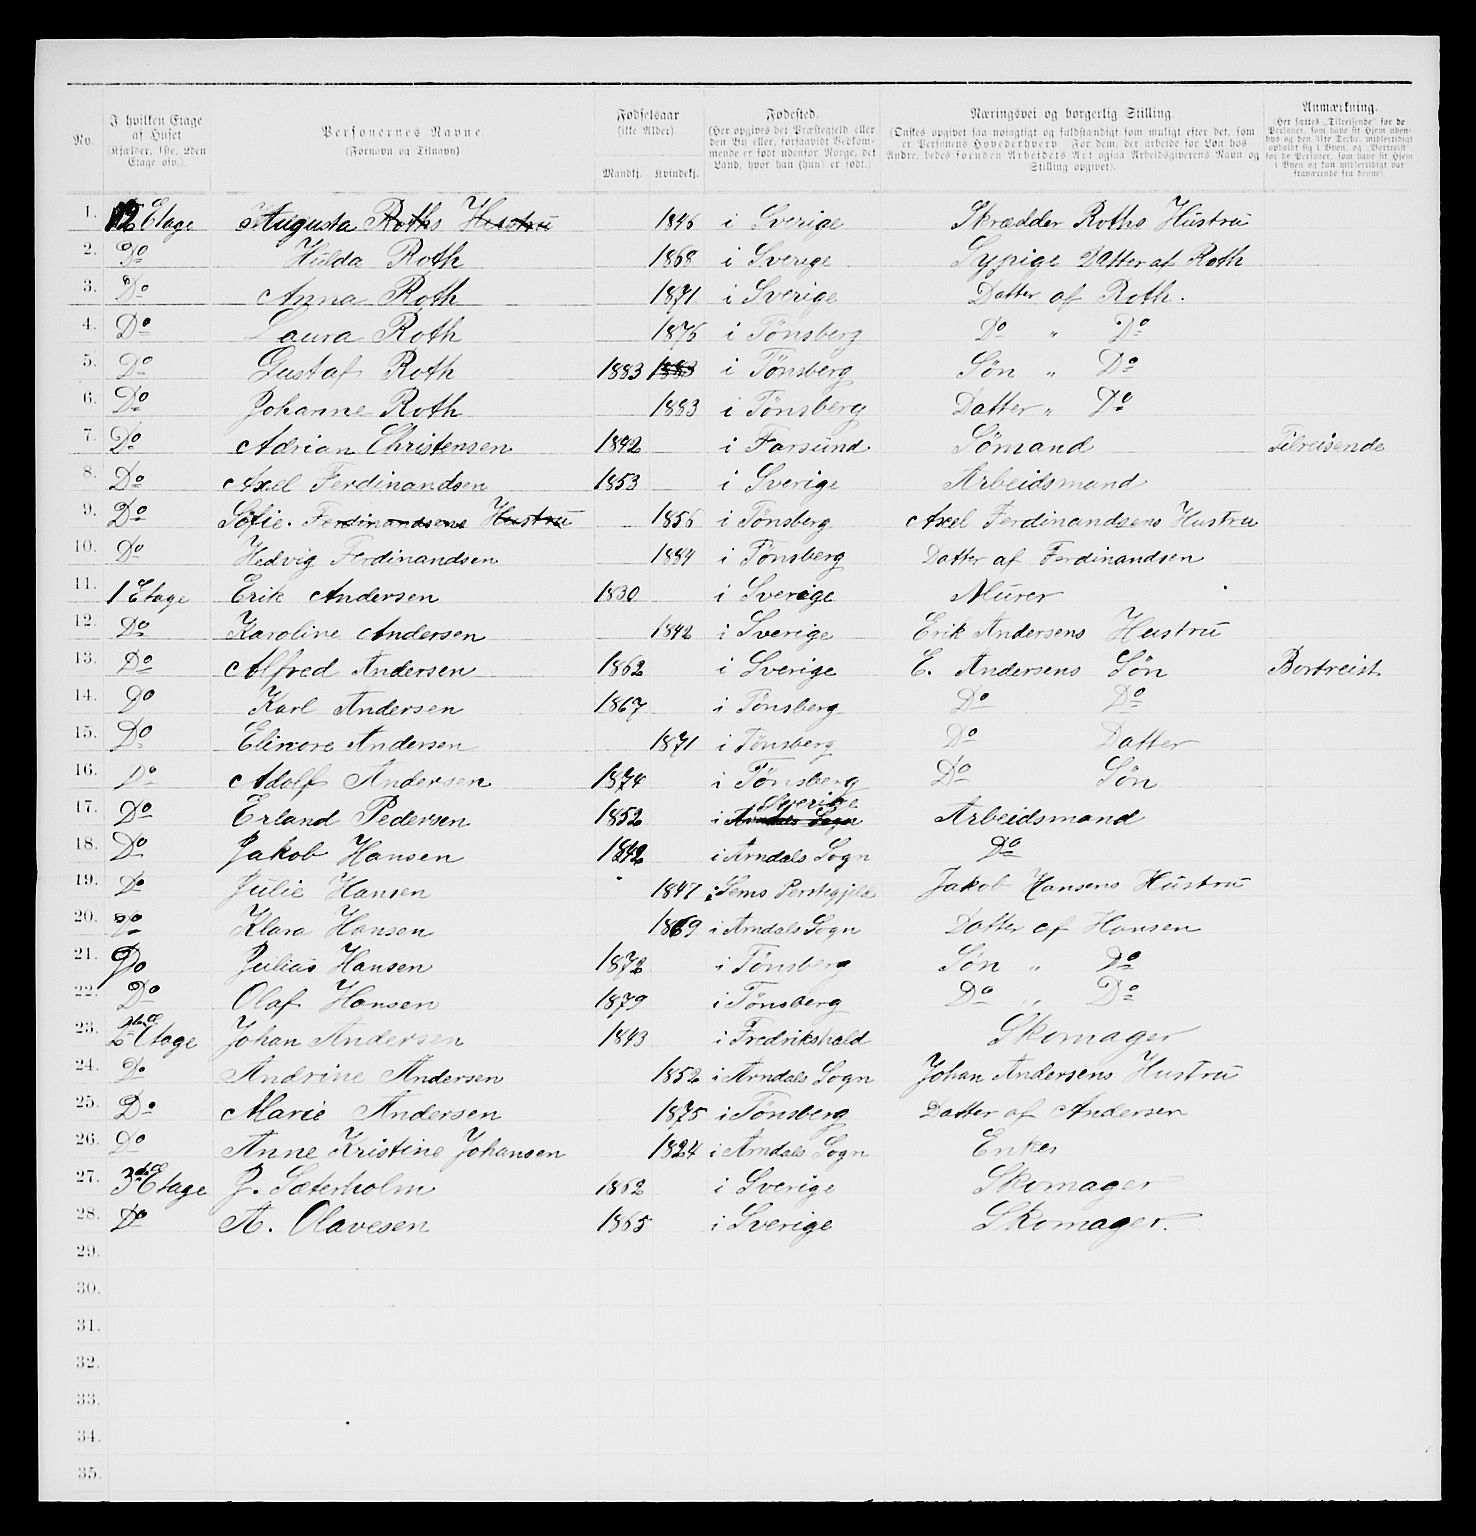 No. I hvilken Etage af Huset (Kjælder, 1ste, 2den Etage osv.). Personernes Navne. (Fornavn og Tilnavn) Fødselsaar (ikke Alder) Mandkj. Kvindekj. Fødested. (Her opgives det Præstegjeld eller den By eller, forsaavidt Vedkommende er født udenfor Norge, det Land, hvor han (hun) er født.) Næringsvei og borgerlig Stilling. (Ønskes opgivet saa nøiagtigt og fuldstændigt som muligt efter det, som er Personens Hovederhverv. For dem, der arbeide for Løn hos Andre, bedes foruden Arbeidets Art ogsaa Arbeidsgiverens Navn og Stilling opgivet). Anmærkning. (Her sættes „Tilreisende" for de Personer, som have sit Hjem udenbys og den 31te Decbr. midlertidigt opholdt sig i Byen, og Bortreist for de Personer, som have sit Hjem i Byen og kun midlertidigt var fraværende fra denne).
1. 2 Etage Augusta Roths Hustru 1846 i Sverige Skrædder Roths Hustru
2. Do Hilda Roth 1868 i Sverige Sypige Datter af Roth
3. Do Anna Roth 1871 i Sverige Datter af Roth.
4. Do Laura Roth 1876 i Tönsberg Do " Do
5. Do Gustaf Roth 1883 1883 i Tönsberg Sön " Do
6. Do Johanne Roth 1883 i Tönsberg Datter " Do
7. Do Adrian Christensen 1842 i Farsund Sömand Tilreisende
8. Do Axel Ferdinandsen 1853 i Sverige Arbeidsmand
9. Do Sofie. Ferdinandsens Hustru 1856 i Tönsberg Axel Ferdinandsens Hustru
10. Do Hedvig Ferdinandsen 1884 i Tönsberg Datter af Ferdinandsen
11. 1 Etage Erik Andersen 1830 i Sverige Murer
12. Do Karoline Andersen 1842 i Sverige Erik Andersens Hustru
13. Do Alfred Andersen 1862 i Sverige E. Andersens Sön Bortreist
14. Do Karl Andersen 1867 i Tönsberg Do Do
15. Do Elinore Andersen 1871 i Tönsberg Do Datter
16. Do Adolf Andersen 1874 i Tönsberg Do Sön
17. Do Erland Pedersen 1852 i Arndals Sogn Sverige Arbeidsmand
18. Do Jakob Hansen 1842 i Arndals Sogn Do
19. Do Julie Hansen 1847 i Sems Jakob Hansens Hustru
20. Do Klara Hansen 1869 i Arndals Sogn Datter af Hansen
21. Do Julius Hansen 1872 i Tönsberg Sön " Do
22. Do Olaf Hansen 1879 i Tönsberg Do " Do
23. 2 Etage Johan Andersen 1843 i Fredrikshald Skomager
24. Do Andrine Andersen 1852 i Arndals Sogn Johan Andersens Hustru
25. Do Marie Andersen 1875 i Tönsberg Datter af Andersen
26. Do Anne Kristine Johansen 1824 i Arndals Sogn Enke
27. 3die Etage J. Sæterholm 1862 i Sverige Skomager
28. Do A. Olavesen 1865 i Sverige Skomager.
29.
30.
31.
32.
33.
34.
35.